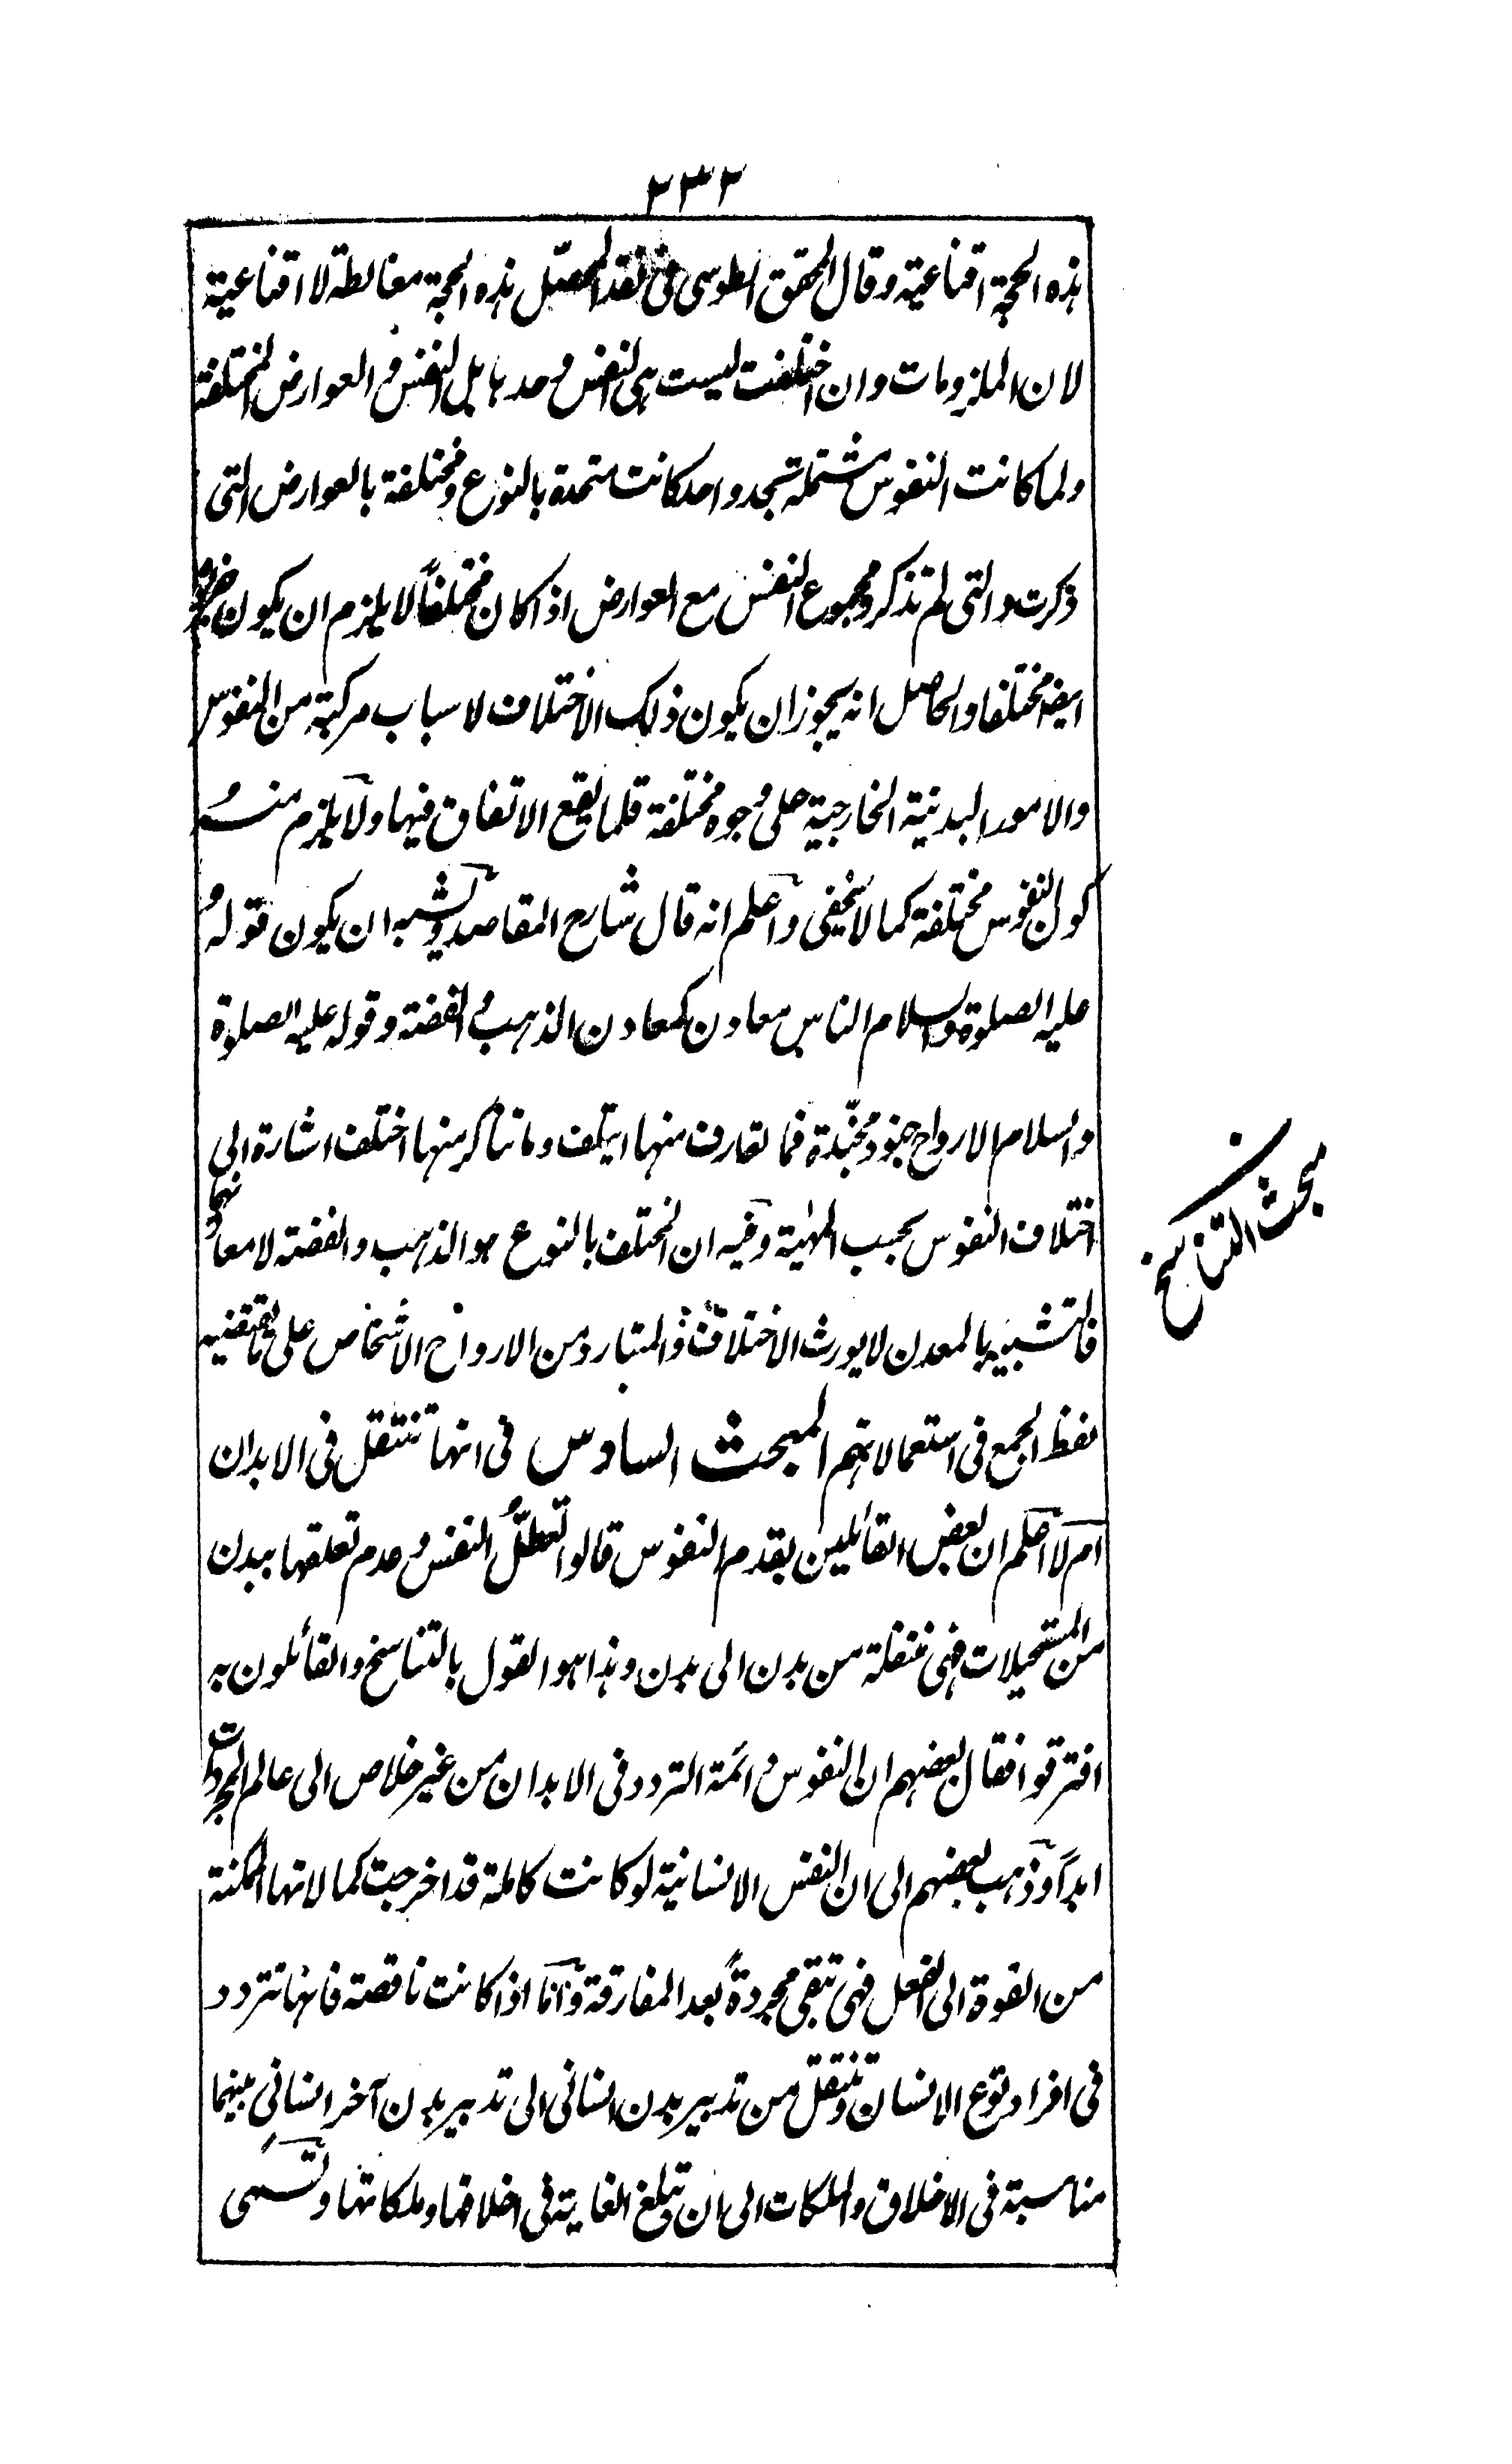 ٢٣٢
هذه الحجة اقناعية وقال المحقق الطوسى فى نقد المحصّل هذه الحجة مغالطة لا اقناعية
لان الملزومات وان اختلفت ليست هى النفس وحدها بل النفس و العوارض المختلفة
ولما كانت النفوس مشتملة تحد واحد كانت متحدة بالنوع ومختلفة بالعوارض التى
ذكرت والتى لم تذكر ومجموع النفس مع العوارض اذا كان مختلفاً لا يلزم ان يكون جزءه
ايضا مختلفا والحاصل انه يجوز ان يكون ذلك الاختلاف لاسباب مركبة من النفوس
والامور البدنية الخارجية على وجوه مختلفة قلما يقع الاتفاق فيها ولا يلزم منه
كون النفوس مختلفة كما لا يخفى واعلم انه قال شارح المقاصد ويشبه ان يكون قوله
عليه الصلوة والسلام الناس معادن كمعادن الذهب و الفضة وقوله عليه الصلوة
والسلام الارواح جنود مجنّدة فما تعارف منها ايتلف وما تناكر منها اختلف اشارة الى
اختلاف النفوس بحسب المهية وفيه ان المختلف بالنوع هو الذهب والفضة لا معادنهما
فالتشبيه بالمعدن لا يورث الاختلاف والمتبادر من الارواح الاشخاص على ما يقتضيه
لفظ الجمع فى استعمالاتهم المبحث السادس فى انها تنتقل فى الابدان
ام لا اعلم ان بعض القائلين بقدم النفوس قالوا تعطّل النفس و عدم تعلقها ببدن
من المستحيلات فهى منتقلة من بدن الى بدن وهذا هو القول بالتناسخ والقائلون به
افترقوا فقال بعضهم ان النفوس دائمة التردد فى الابدان من غير خلاص الى عالم المجردات
ابداً وذهب بعضهم الى ان النفس الانسانية لو كانت كاملة قد اخرجت كمالاتها الممكنة
من القوة الى الفعل فهى تبقى مجردةً بعد المفارقة واما اذا كانت ناقصة فانها تتردد
فى افراد نوع الانسان وتنتقل من تدبير بدن انسانى الى تدبير بدن آخر انسانى بينهما
مناسبة فى الاخلاق والملكات الى ان تبلغ الغاية فى اخلاقها وملكاتها وتسمى
مبحث التناسخ